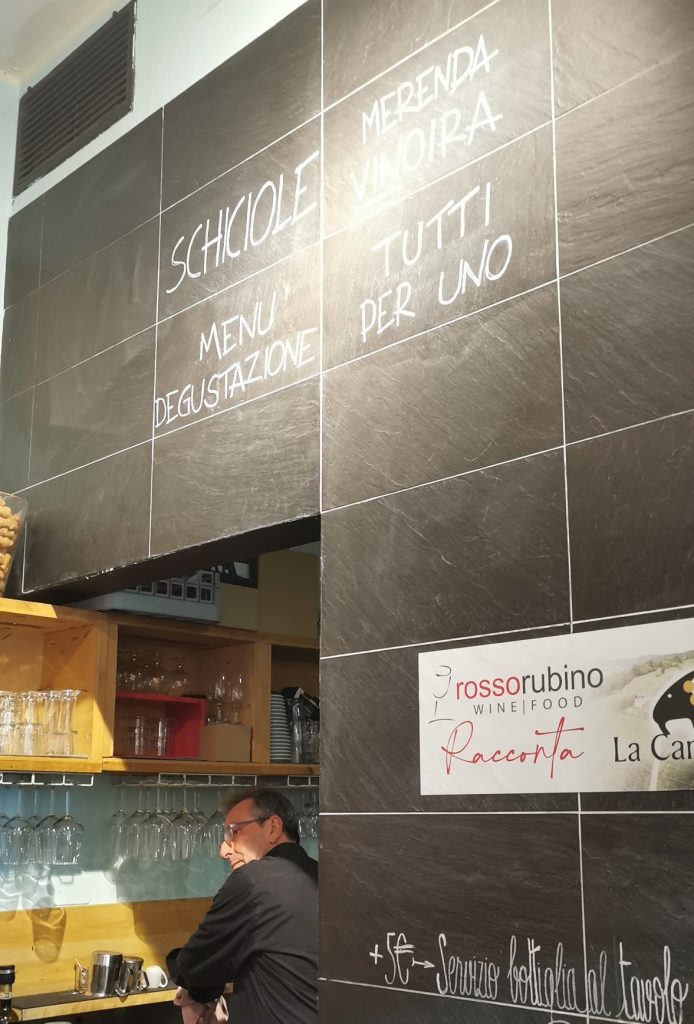 SCHICIOLE
MENU'
DEGUSTAZIONE
MERENDA
VINOIRA
TUTTI
PER UNO
rossorubino
WINE|FOOD
Racconta
La Car
+5€→ Servizio bottiglia al tavolo